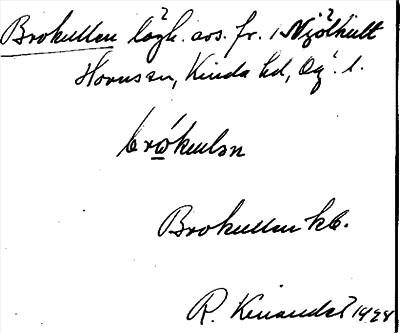 Brokullen lägh. avs. fr. 1 Njölhult
Horns sn, Kinda hd, Ög. l.
brókulən
Brokullen kb.
R. 1928